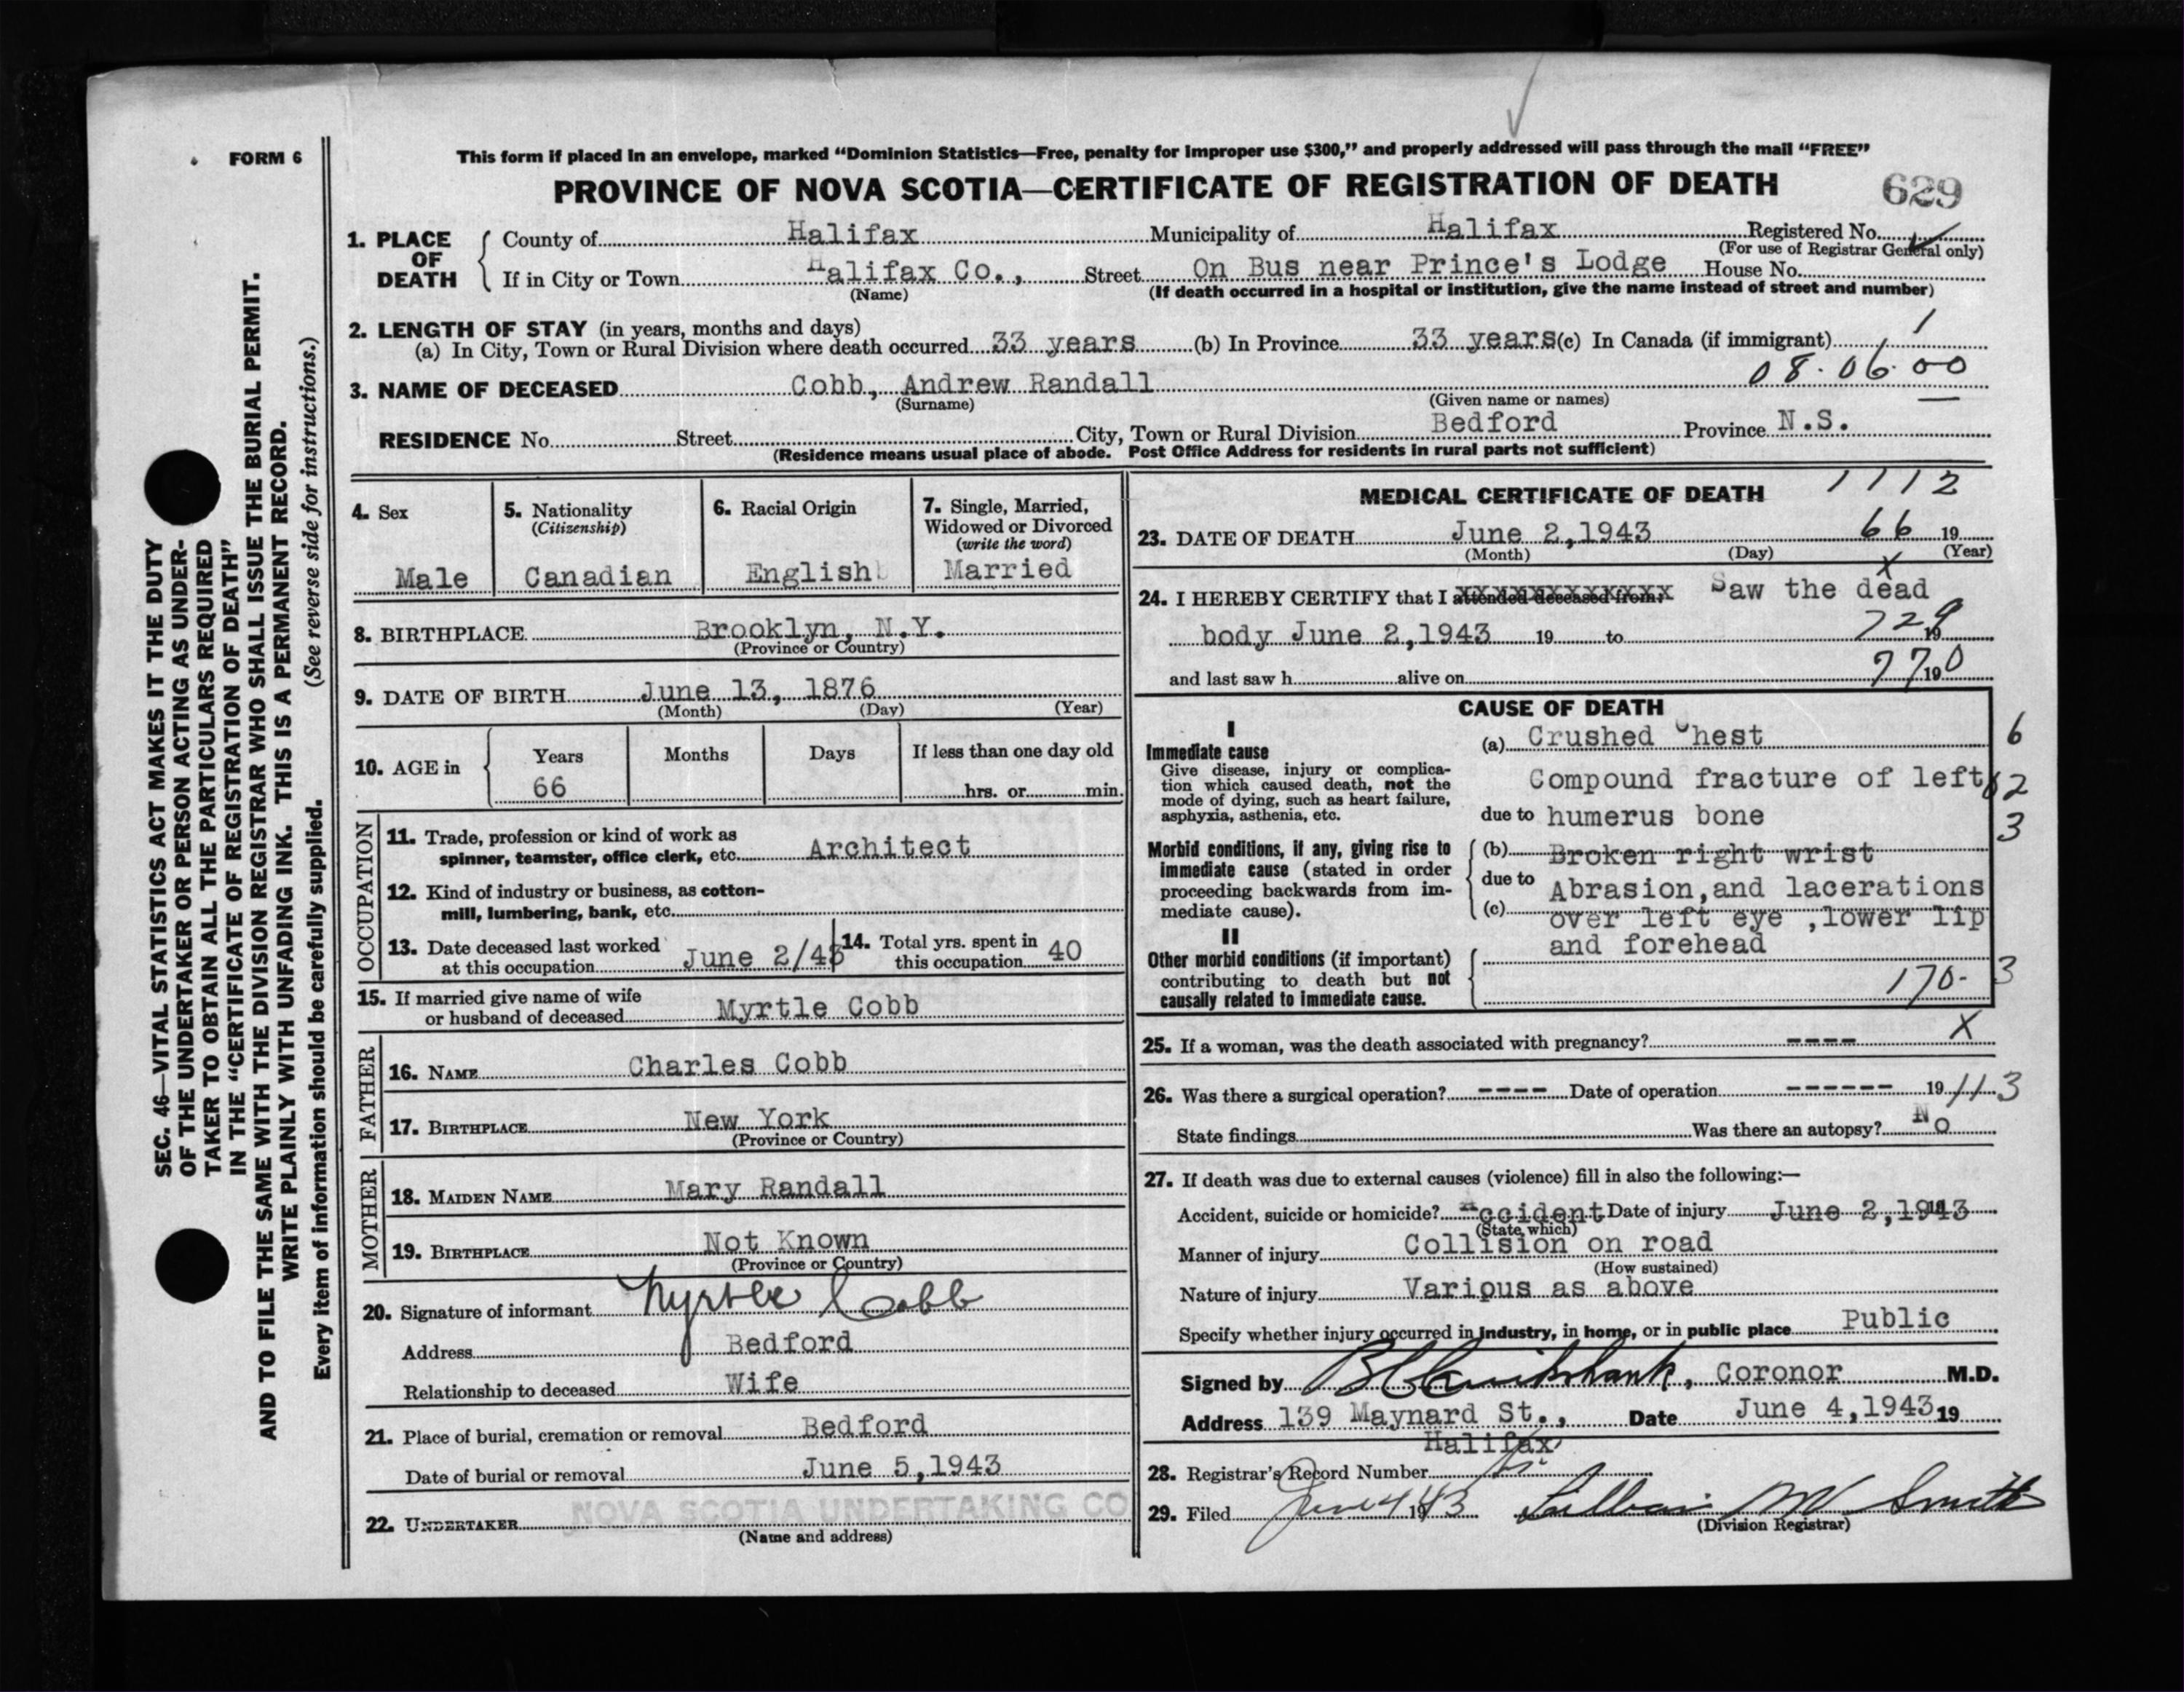 FORM 6
This form if placed in an envelope, marked “Dominion Statistics—Free, penalty for improper use $300,” and properly addressed will pass through the mail “FREE”
PROVINCE OF NOVA SCOTIA—CERTIFICATE OF REGISTRATION OF DEATH
629
1. PLACE OF DEATH
County of Halifax Municipality of Halifax Registered No.
(For use of Registrar General only)
If in City or Town Halifax Co., Street On Bus near Prince's Lodge House No.
(Name) (If death occurred in a hospital or institution, give the name instead of street and number)
2. LENGTH OF STAY (in years, months and days)
(a) In City, Town or Rural Division where death occurred 33 years (b) In Province 33 years (c) In Canada (if immigrant) 1
08.06.00
3. NAME OF DECEASED Cobb, Andrew Randall
(Surname) (Given name or names)
RESIDENCE No. Street City, Town or Rural Division Bedford Province N.S.
(Residence means usual place of abode. Post Office Address for residents in rural parts not sufficient)
4. Sex
Male
5. Nationality
(Citizenship)
Canadian
6. Racial Origin
English
7. Single, Married,
Widowed or Divorced
(write the word)
Married
8. BIRTHPLACE Brooklyn, N.Y.
(Province or Country)
9. DATE OF BIRTH June 13, 1876
(Month) (Day) (Year)
10. AGE in
Years Months Days If less than one day old
66 hrs. or min.
OCCUPATION
11. Trade, profession or kind of work as
spinner, teamster, office clerk, etc. Architect
12. Kind of industry or business, as cotton-
mill, lumbering, bank, etc.
13. Date deceased last worked
at this occupation June 2/43
14. Total yrs. spent in
this occupation 40
15. If married give name of wife
or husband of deceased Myrtle Cobb
FATHER
16. NAME Charles Cobb
17. BIRTHPLACE New York
(Province or Country)
MOTHER
18. MAIDEN NAME Mary Randall
19. BIRTHPLACE Not Known
(Province or Country)
20. Signature of informant Myrtle Cobb
Address Bedford
Relationship to deceased Wife
21. Place of burial, cremation or removal Bedford
Date of burial or removal June 5,1943
22. UNDERTAKER NOVA SCOTIA UNDERTAKING CO
(Name and address)
MEDICAL CERTIFICATE OF DEATH 1112
23. DATE OF DEATH June 2,1943 66 19
(Month) (Day) (Year)
x
24. I HEREBY CERTIFY that I attended deceased from: Saw the dead
body June 2,1943 19 to 729 19
and last saw h alive on 770 19
CAUSE OF DEATH
I
Immediate cause
Give disease, injury or complica-
tion which caused death, not the
mode of dying, such as heart failure,
asphyxia, asthenia, etc.
(a) Crushed Chest 6
Compound fracture of left 62
due to humerus bone 3
Morbid conditions, if any, giving rise to
immediate cause (stated in order
proceeding backwards from im-
mediate cause).
(b) Broken right wrist
due to Abrasion,and lacerations
(c) over left eye ,lower lip
and forehead
II
Other morbid conditions (if important)
contributing to death but not
causally related to immediate cause.
170- 3
25. If a woman, was the death associated with pregnancy? ---- X
26. Was there a surgical operation? ---- Date of operation ------ 19 113
State findings Was there an autopsy? No
27. If death was due to external causes (violence) fill in also the following:—
Accident, suicide or homicide? Accident Date of injury June 2,1943
(State which)
Manner of injury Collision on road
(How sustained)
Nature of injury Various as above
Specify whether injury occurred in industry, in home, or in public place Public
Signed by B C Cruikshank, Coronor M.D.
Address 139 Maynard St., Date June 4,1943 19
Halifax
28. Registrar's Record Number
29. Filed June 4 1943 Lillian M Smith
(Division Registrar)
SEC. 46—VITAL STATISTICS ACT MAKES IT THE DUTY
OF THE UNDERTAKER OR PERSON ACTING AS UNDER-
TAKER TO OBTAIN ALL THE PARTICULARS REQUIRED
IN THE “CERTIFICATE OF REGISTRATION OF DEATH”
AND TO FILE THE SAME WITH THE DIVISION REGISTRAR WHO SHALL ISSUE THE BURIAL PERMIT.
WRITE PLAINLY WITH UNFADING INK. THIS IS A PERMANENT RECORD.
Every item of information should be carefully supplied. (See reverse side for instructions.)